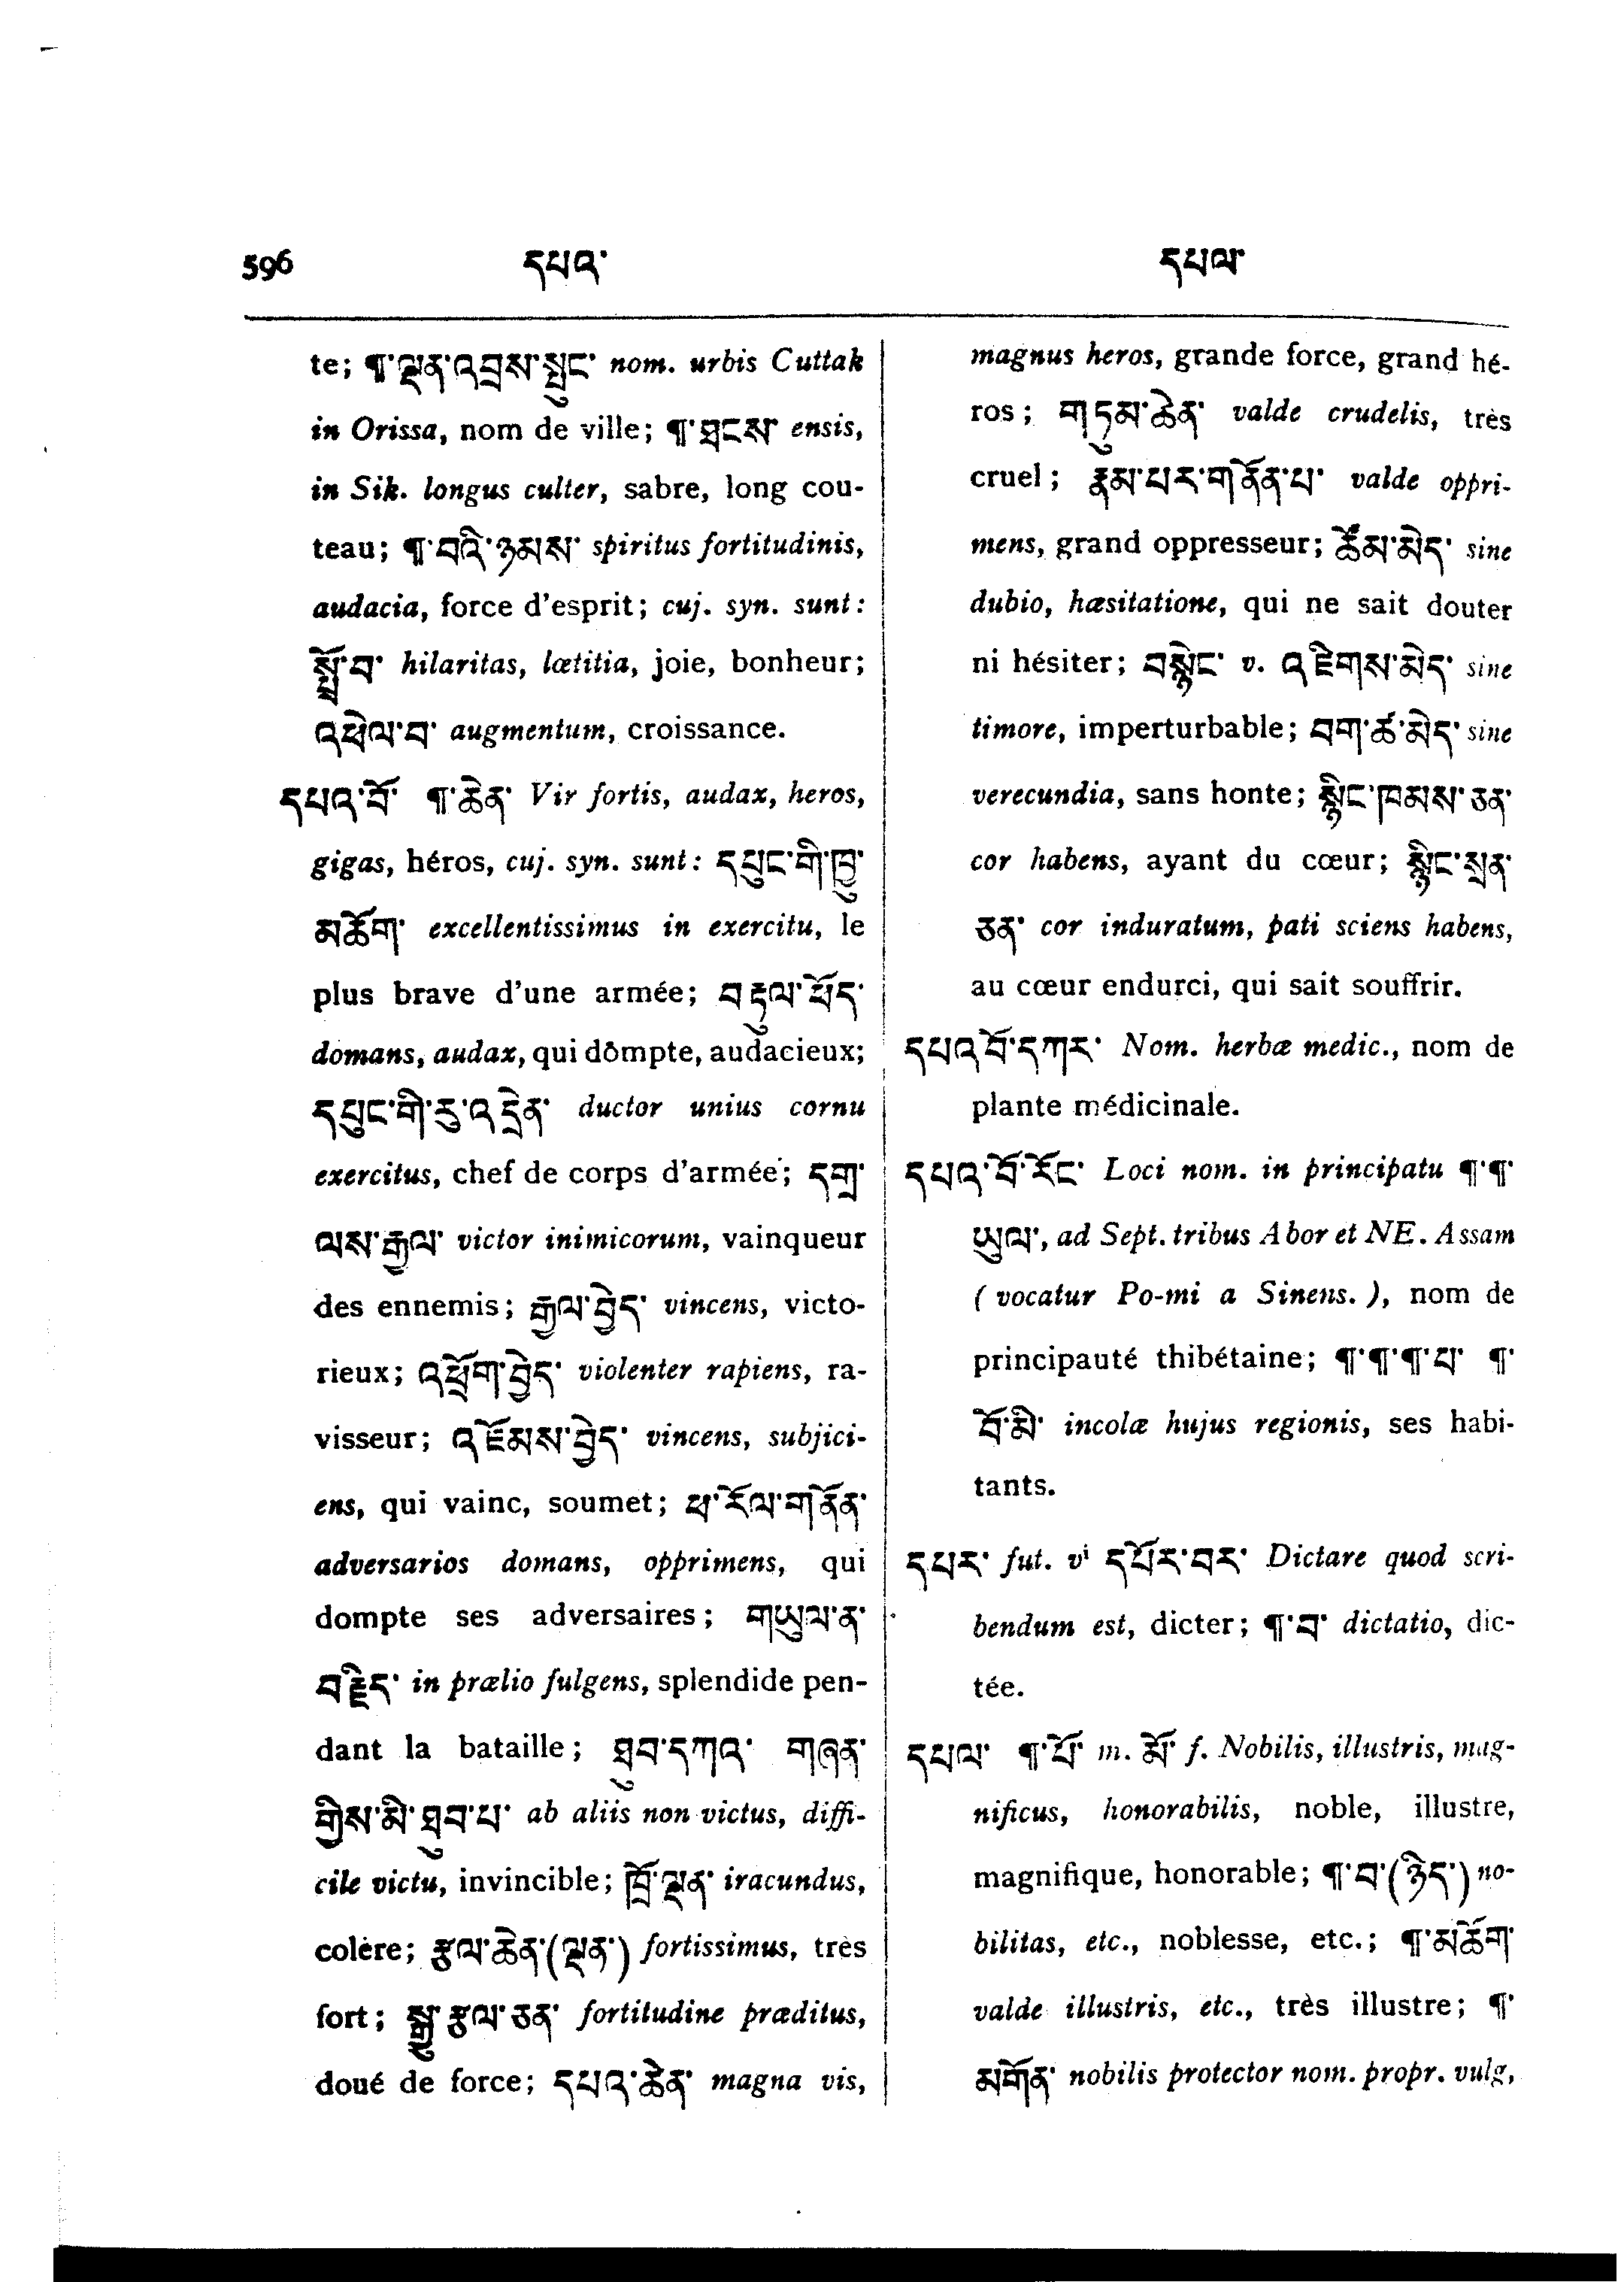 596 དཔའ་ དཔལ་
te; ¶་ལྡན་འབྲས་སྤུང་ nom. urbis Cuttak
in Orissa, nom de ville; ¶་ཐངས་ ensis,
in Sik. longus culter, sabre, long cou-
teau; ¶་བའི་ཉམས་ spiritus fortitudinis,
audacia, force d'esprit; cuj. syn. sunt:
སྤྲོ་བ་ hilaritas, lætitia, joie, bonheur;
འཕེལ་བ་ augmentum, croissance.
དཔའ་བོ་ ¶་ཆེན་ Vir fortis, audax, heros,
gigas, héros, cuj. syn. sunt: དཔུང་གི་ཁྱུ་
མཆོག་ excellentissimus in exercitu, le
plus brave d'une armée; བརྟུལ་ཕོད་
domans, audax, qui dômpte, audacieux;
དཔུང་གི་རུ་འདྲེན་ ductor unius cornu
exercitus, chef de corps d'armée; དགྲ་
ལས་རྒྱལ་ victor inimicorum, vainqueur
des ennemis; རྒྱལ་བྱེད་ vincens, victo-
rieux; འཕྲོག་བྱེད་ violenter rapiens, ra-
visseur; འཇོམས་བྱེད་ vincens, subjici-
ens, qui vainc, soumet; ཕ་རོལ་གནོན་
adversarios domans, opprimens, qui
dompte ses adversaires; གཡུལ་ན་
བརྗིད་ in prælio fulgens, splendide pen-
dant la bataille; ཐུབ་དཀའ་ གཞན་
གྱིས་མི་ཐུབ་པ་ ab aliis non victus, diffi-
cile victu, invincible; ཁྲོ་ལྡན་ iracundus,
colère; རྩལ་ཆེན་(ལྡན་) fortissimus, très
fort; སྒྱུ་རྩལ་ཅན་ fortitudine præditus,
doué de force; དཔའ་ཆེན་ magna vis,
magnus heros, grande force, grand hé-
ros; གཏུམ་ཆེན་ valde crudelis, très
cruel; རྣམ་པར་གནོན་པ་ valde oppri-
mens, grand oppresseur; ཚོམ་མེད་ sine
dubio, hæsitatione, qui ne sait douter
ni hésiter; བསྙེང་ v. འཇིགས་མེད་ sine
timore, imperturbable; བག་ཚ་མེད་ sine
verecundia, sans honte; སྙིང་ཁམས་ཅན་
cor habens, ayant du cœur; སྙིང་སྲན་
ཅན་ cor induratum, pati sciens habens,
au cœur endurci, qui sait souffrir.
དཔའ་བོ་དཀར་ Nom. herbæ medic., nom de
plante médicinale.
དཔའ་བོ་རོང་ Loci nom. in principatu ¶་¶་
ཡུལ་, ad Sept. tribus Abor et NE. Assam
(vocatur Po-mi a Sinens.), nom de
principauté thibétaine; ¶་¶་¶་པ་ ¶་
བོ་མི་ incolæ hujus regionis, ses habi-
tants.
དཔར་ fut. vi དཔོར་བར་ Dictare quod scri-
bendum est, dicter; ¶་བ་ dictatio, dic-
tée.
དཔལ་ ¶་པོ་ m. མོ་ f. Nobilis, illustris, mag-
nificus, honorabilis, noble, illustre,
magnifique, honorable; ¶་བ་(ཉིད་) no-
bilitas, etc., noblesse, etc.; ¶་མཆོག་
valde illustris, etc., très illustre; ¶་
མགོན་ nobilis protector nom. propr. vulg,